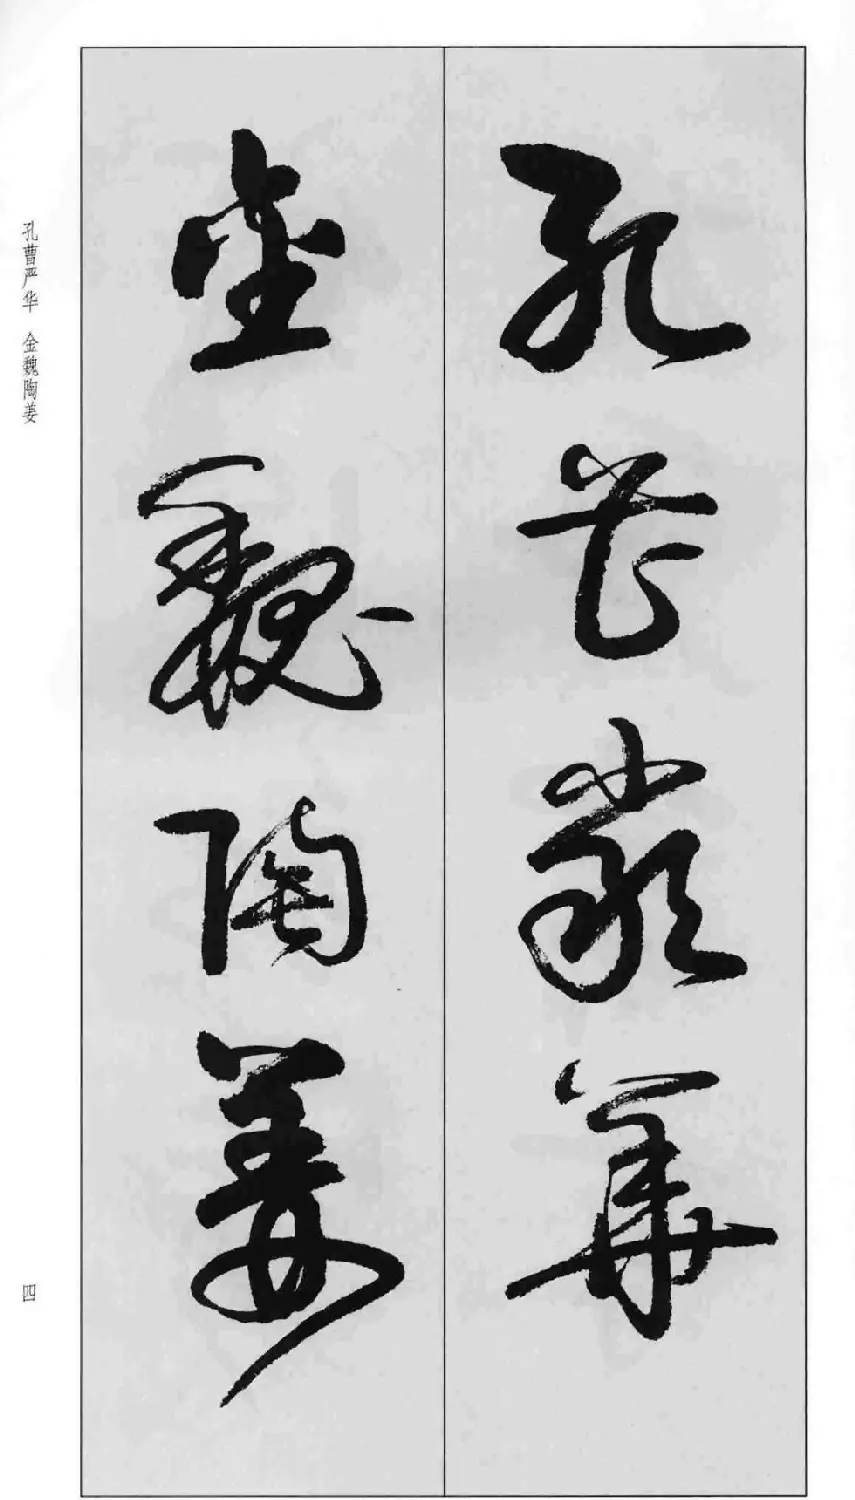 孔曹嚴華
金魏陶姜
孔曹严华 金魏陶姜
四